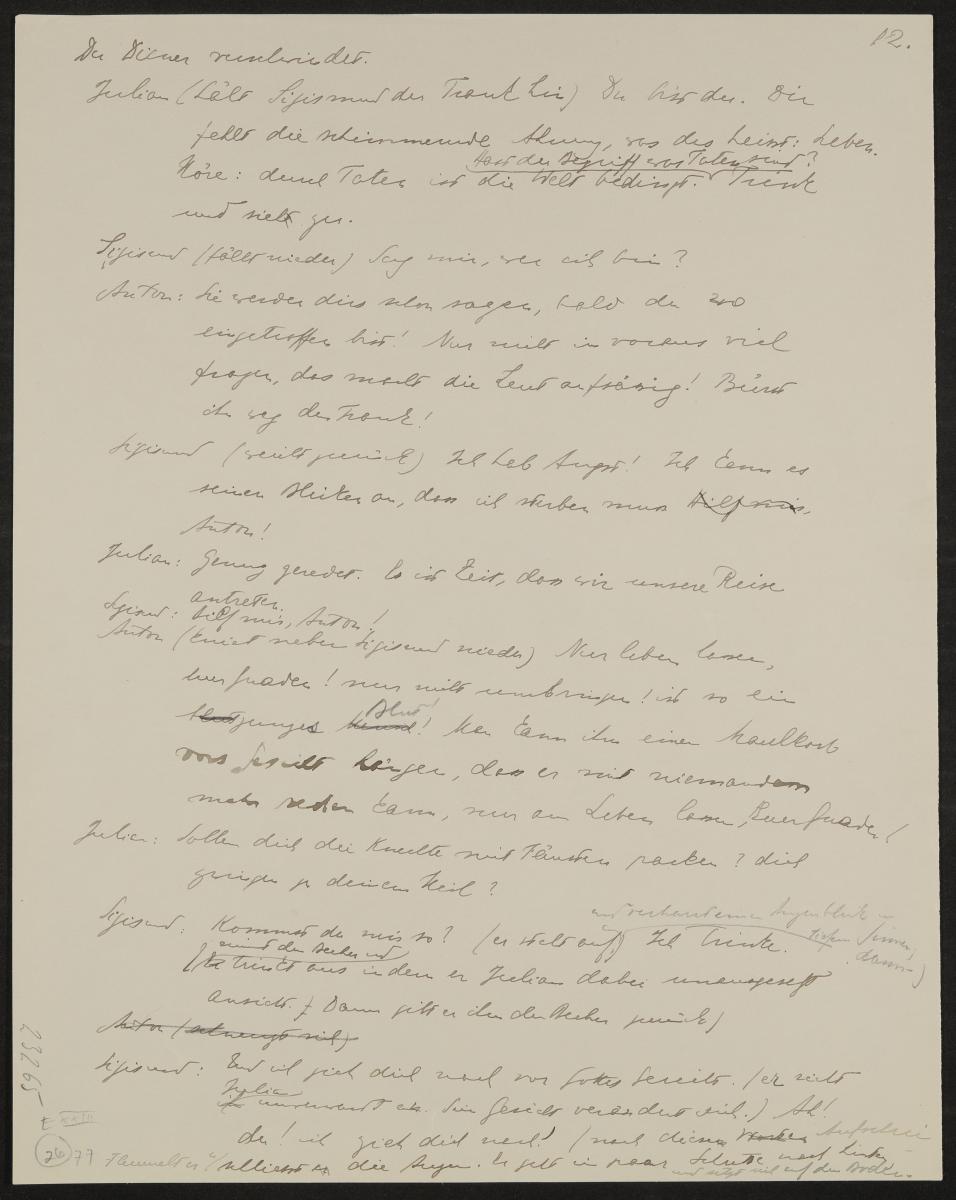 12.
Der Diener verschwindet.
Julian (hält Sigismund den Trank hin) Du bist du. Dir
fehlt die schimmernde Ahnung, was das heisst: Leben.
Hast du Begriff was Taten sind?
Höre: denn Taten ist die Welt bedingt. Trink
und sieh zu.
Sigismund (fällt nieder) Sag mir, wer ich bin?
Anton: Sie werden dirs schon sagen, bald du wo
eingetroffen bist! Nur nicht im voraus viel
fragen, das macht die Leut aufsässig!
ihn weg den Trank!
Sigismund (weicht zurück) Ich hab Angst! Ich kenn es
seinen Blicken an, dass ich sterben muss Hilf mir,
Anton!
Julian: Genug geredet. Es ist Zeit, dass wir unsere Reise
antreten.
Sigismund: Hilf mir, Anton!
Anton (kniet neben Sigismund nieder) Nur leben lassen,
euer Gnaden! nur nicht umbringen! ist so ein
junges Blut! Man kann ihm einen Maulkorb
vors Gesicht hängen, dass er mit niemandem
mehr reden kann, nur am Leben lassen, Euer Gnaden!
Julian: Sollen dich die Knechte mit Fäusten packen? dich
zwingen zu deinem Heil?
Sigismund: Kommst du mir so? (er steht auf) Ich trinke.
tiefem Sinnen,
dann)
nimmt den Becher und
trinkt aus indem er Julian dabei unausgesetzt
ansieht. Dann gibt er ihm den Becher zurück)
Anton (
Sigismund: Und ich zieh dich nach vor Gottes Gericht. (er sieht
Julian
unverwandt an. Sein Gesicht verändert sich.) Ah!
du! ich zieh dich nach! (nach diesem Aufschrei
schliesst er die Augen. Er geht ein paar Schritte nach links
und setzt sich auf den Boden.
E XXIII
26
77
23265